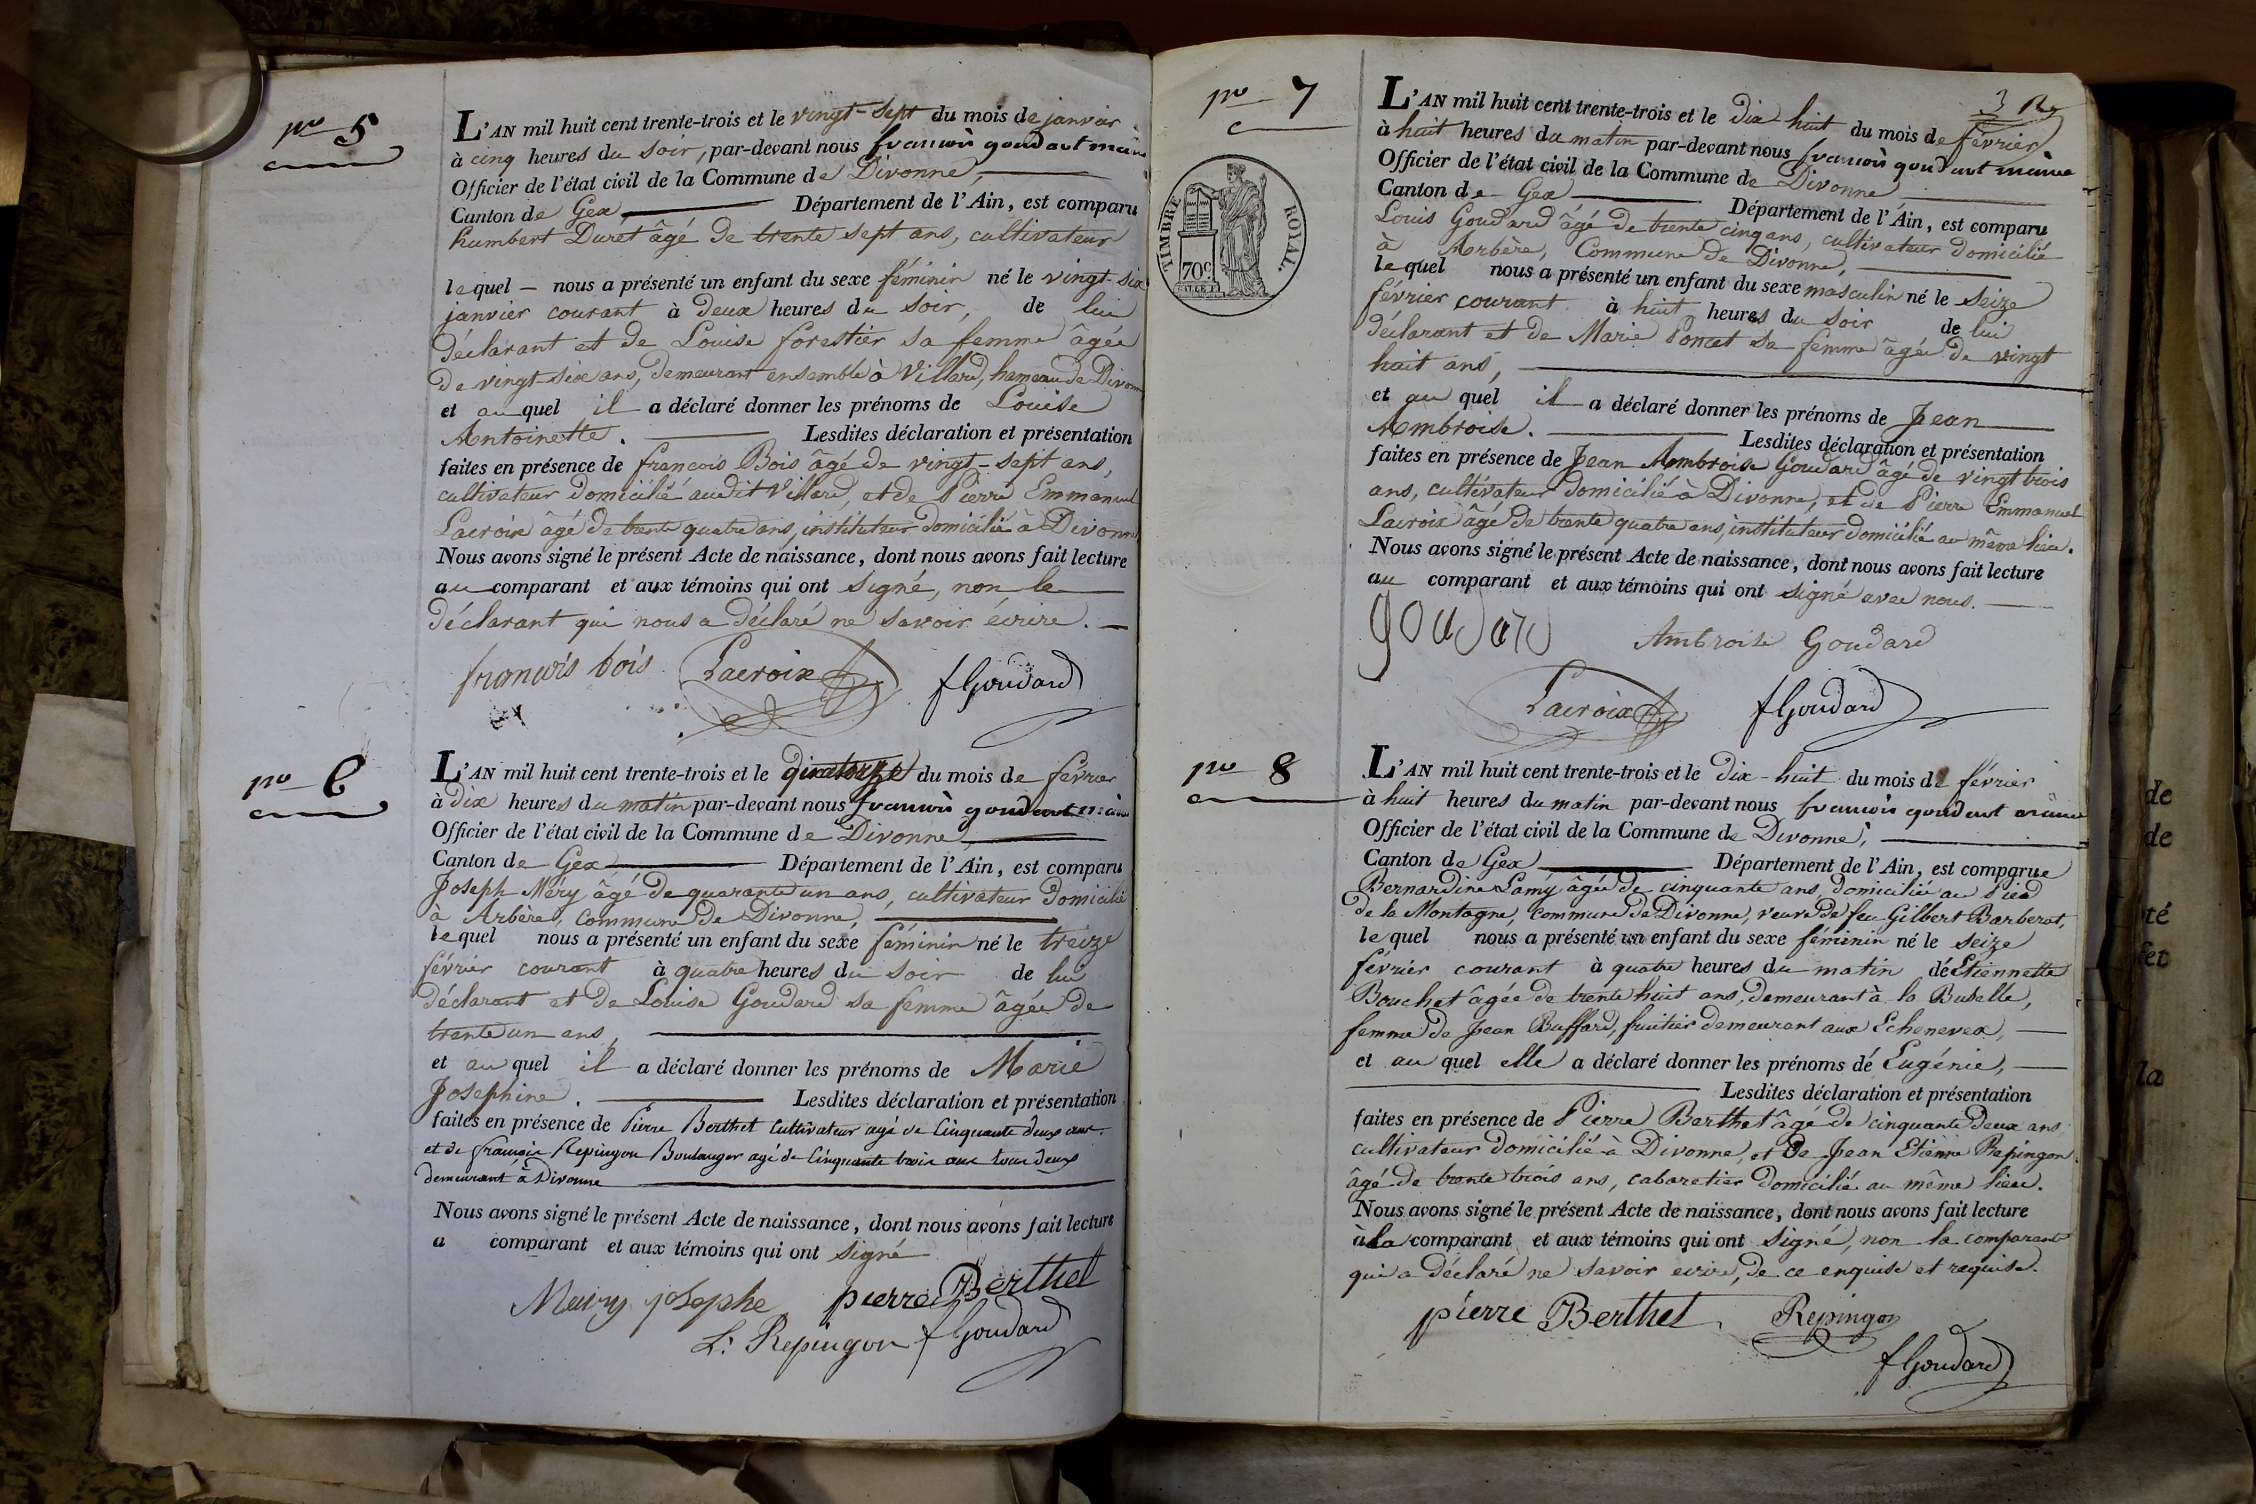 no 5
L'AN mil huit cent trente-trois et le vingt-sept du mois de janvier
à cinq heures du soir, par-devant nous francois goudart maire
Officier de l'état civil de la Commune de Divonne,
Canton de Gex, Département de l'Ain, est comparu
humbert Duret âgé de trente sept ans, cultivateur
lequel nous a présenté un enfant du sexe féminin né le vingt-six
janvier courant à deux heures du soir, de lui
déclarant et de Louise forestier sa femme âgée
de vingt-six ans, demeurant ensemble à Villard, hameau de Divonne
et au quel il a déclaré donner les prénoms de Louise
Antoinette. Lesdites déclaration et présentation
faites en présence de francois Bois âgé de vingt-sept ans,
cultivateur domicilié audit Villard, et de Pierre Emmanuel
Lacroix âgé de trente quatre ans, instituteur domicilié à Divonne
Nous avons signé le présent Acte de naissance, dont nous avons fait lecture
au comparant et aux témoins qui ont signé, non le
déclarant qui nous a déclaré ne savoir écrire.
francois bois Lacroix fGoudard
no 6
L'AN mil huit cent trente-trois et le quatorze du mois de février
à dix heures du matin par-devant nous francois goudart maire
Officier de l'état civil de la Commune de Divonne,
Canton de Gex, Département de l'Ain, est comparu
Joseph Mery âgé de quarante un ans, cultivateur domicilié
à Arbère, commune de Divonne,
lequel nous a présenté un enfant du sexe féminin né le treize
février courant à quatre heures du soir de lui
déclarant et de Louise Goudard sa femme âgée de
trente un ans,
et au quel il a déclaré donner les prénoms de Marie
Josephine. Lesdites déclaration et présentation
faites en présence de Pierre Berthet Cultivateur agé de Cinquante deux ans.
et de francois Repingon Boulanger agé de Cinquante trois ans tous deux
demeurant à Divonne
Nous avons signé le présent Acte de naissance, dont nous avons fait lecture
a comparant et aux témoins qui ont signé
Mery josephe pierre Berthet
Repingon fGoudard
no 7
3
L'AN mil huit cent trente-trois et le Dix huit du mois de février
à huit heures du matin par-devant nous francois goudart maire
Officier de l'état civil de la Commune de Divonne
Canton de Gex Département de l'Ain, est comparu
Louis Goudard âgé de trente cinq ans, cultivateur domicilié
à Arbère, Commune de Divonne,
lequel nous a présenté un enfant du sexe masculin né le seize
février courant à huit heures du soir de lui
déclarant et de Marie Poncet sa femme âgée de vingt
huit ans,
et au quel il a déclaré donner les prénoms de Jean
Ambroise. Lesdites déclaration et présentation
faites en présence de Jean Ambroise Goudard âgé de vingt trois
ans, cultivateur domicilié à Divonne, et de Pierre Emmanuel
Lacroix âgé de trente quatre ans, instituteur domicilié au même lieu.
Nous avons signé le présent Acte de naissance, dont nous avons fait lecture
au comparant et aux témoins qui ont signé avec nous.
goudard Ambroise Goudard
Lacroix fGoudard
TIMBRE ROYAL.
70c
no 8
L'AN mil huit cent trente-trois et le Dix-huit du mois de février
à huit heures du matin par-devant nous francois goudart maire
Officier de l'état civil de la Commune de Divonne,
Canton de Gex Département de l'Ain, est comparue
Bernardine Lamy âgée de cinquante ans domiciliée au Pied
de la Montagne, commune de Divonne, veuve de feu Gilbert Barberat,
lequel nous a présenté un enfant du sexe féminin né le seize
février courant à quatre heures du matin dé Etiennette
Bouchet âgée de trente huit ans, demeurant à la
femme de Jean Buffard, fruitier demeurant aux Echenevex,
et au quel elle a déclaré donner les prénoms dé Eugénie,
Lesdites déclaration et présentation
faites en présence de Pierre Berthet âgé de cinquante deux ans,
cultivateur domicilié à Divonne, et de Jean Etienne Repingon
âgé de trente trois ans, cabaretier domicilié au même lieu.
Nous avons signé le présent Acte de naissance, dont nous avons fait lecture
à la comparant et aux témoins qui ont signé, non la comparant
qui a déclaré ne savoir ecrire, de ce enquise et requise.
pierre Berthet Repingon
fGoudard
de
de
té
et
la